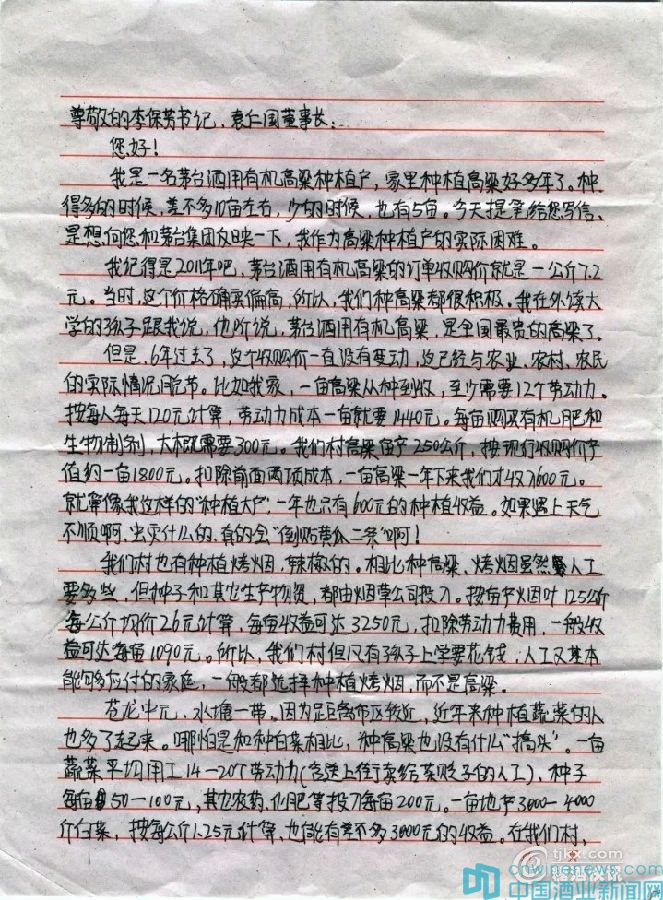 尊敬的李保芳书记、袁仁国董事长:
您好!
我是一名茅台酒用有机高粱种植户,家里种植高粱好多年了。种
得多的时候,差不多10亩左右,少的时候,也有5亩。今天提笔给您写信,
是想向您和茅台集团反映一下,我作为高粱种植户的实际困难。
我记得是2011年吧,茅台酒用有机高粱的订单收购价就是一公斤7.2
元。当时,这个价格确实偏高,所以,我们种高粱都很积极。我在外读大
学的孩子跟我说,他听说,茅台酒用有机高粱,是全国最贵的高粱了。
但是,6年过去了,这个收购价一直没有变动,这已经与农业、农村、农民
的实际情况脱节。比如我家,一亩高粱从种到收,至少需要12个劳动力。
按每人每天120元计算,劳动力成本一亩就要1440元。每亩购买有机肥和
生物制剂,大概需要300元。我们村高粱亩产250公斤,按现行收购价产
值约一亩1800元。扣除前面两项成本,一亩高粱一年下来我们才收入600元。
就算像我这样的"种植大户",一年也只有600元的种植收益。如果遇上天气
不顺啊、出买什么的,真的会"倒贴黄瓜二条"啊!
我们村也有种植烤烟,辣椒的。相比种高粱、烤烟虽然人工
要多些,但种子和其它生产物资,都由烟草公司投入。按亩产烟叶125公斤
每公斤均价26元计算,每亩收益可达3250元,扣除劳动力费用,一般收
益可达每亩1090元。所以,我们村但凡有孩子上学要花钱,人工又基本
能够应付的家庭,一般都选择种植烤烟,而不是高粱。
苍龙中元,水塘一带。因为距离市区较近,近年来种植蔬菜的人
也多了起来。哪怕是和种白菜相比,种高粱也没有什么"搞头"。一亩
蔬菜平均用工14—20个劳动力(含送上街卖给菜贩子的人工),种子
每亩50—100元,其它农药、化肥等投入每亩200元。一亩地产3000—4000
斤白菜,按每公斤1.25元计算、也能有差不多3000元的收益。在我们村,
tjkx.com
糖酒快讯
cnwinenews.com
中国酒业新闻网